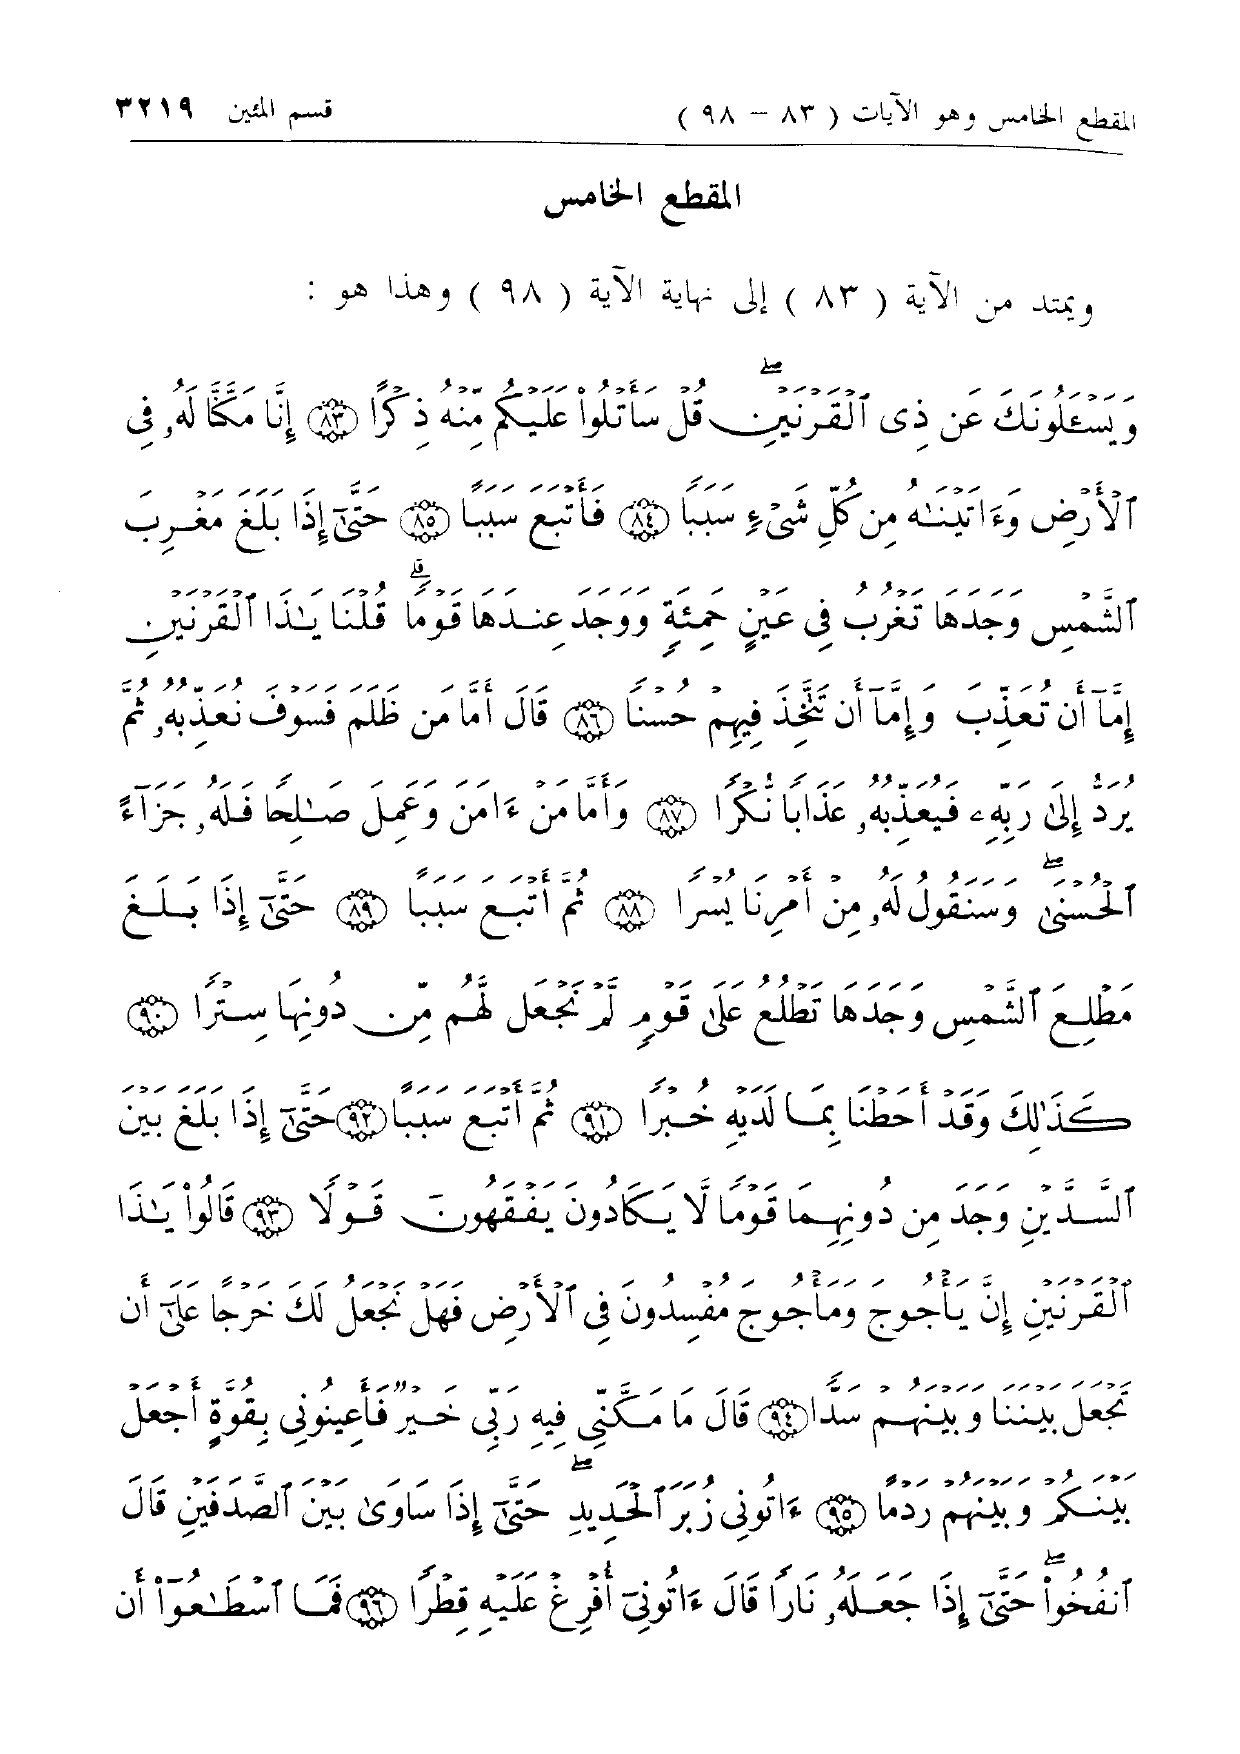 المقطع الخامس وهو الآيات ( ٨٣ – ٩٨ ) قسم المئين ٣٢١٩
المقطع الخامس
ويمتد من الآية ( ٨٣ ) إلى نهاية الآية ( ٩٨ ) وهذا هو :
وَيَسْـَٔلُونَكَ عَن ذِى ٱلْقَرْنَيْنِ ۖ قُلْ سَأَتْلُوا۟ عَلَيْكُم مِّنْهُ ذِكْرًا ٨٣ إِنَّا مَكَّنَّا لَهُۥ فِى
ٱلْأَرْضِ وَءَاتَيْنَـٰهُ مِن كُلِّ شَىْءٍ سَبَبًا ٨٤ فَأَتْبَعَ سَبَبًا ٨٥ حَتَّىٰٓ إِذَا بَلَغَ مَغْرِبَ
ٱلشَّمْسِ وَجَدَهَا تَغْرُبُ فِى عَيْنٍ حَمِئَةٍ وَوَجَدَ عِندَهَا قَوْمًا ۗ قُلْنَا يَـٰذَا ٱلْقَرْنَيْنِ
إِمَّآ أَن تُعَذِّبَ وَإِمَّآ أَن تَتَّخِذَ فِيهِمْ حُسْنًا ٨٦ قَالَ أَمَّا مَن ظَلَمَ فَسَوْفَ نُعَذِّبُهُۥ ثُمَّ
يُرَدُّ إِلَىٰ رَبِّهِۦ فَيُعَذِّبُهُۥ عَذَابًا نُّكْرًا ٨٧ وَأَمَّا مَنْ ءَامَنَ وَعَمِلَ صَـٰلِحًا فَلَهُۥ جَزَآءً
ٱلْحُسْنَىٰ ۖ وَسَنَقُولُ لَهُۥ مِنْ أَمْرِنَا يُسْرًا ٨٨ ثُمَّ أَتْبَعَ سَبَبًا ٨٩ حَتَّىٰٓ إِذَا بَلَغَ
مَطْلِعَ ٱلشَّمْسِ وَجَدَهَا تَطْلُعُ عَلَىٰ قَوْمٍ لَّمْ نَجْعَل لَّهُم مِّن دُونِهَا سِتْرًا ٩٠
كَذَٰلِكَ وَقَدْ أَحَطْنَا بِمَا لَدَيْهِ خُبْرًا ٩١ ثُمَّ أَتْبَعَ سَبَبًا ٩٢ حَتَّىٰٓ إِذَا بَلَغَ بَيْنَ
ٱلسَّدَّيْنِ وَجَدَ مِن دُونِهِمَا قَوْمًا لَّا يَكَادُونَ يَفْقَهُونَ قَوْلًا ٩٣ قَالُوا۟ يَـٰذَا
ٱلْقَرْنَيْنِ إِنَّ يَأْجُوجَ وَمَأْجُوجَ مُفْسِدُونَ فِى ٱلْأَرْضِ فَهَلْ نَجْعَلُ لَكَ خَرْجًا عَلَىٰٓ أَن
تَجْعَلَ بَيْنَنَا وَبَيْنَهُمْ سَدًّا ٩٤ قَالَ مَا مَكَّنِّى فِيهِ رَبِّى خَيْرٌ فَأَعِينُونِى بِقُوَّةٍ أَجْعَلْ
بَيْنَكُمْ وَبَيْنَهُمْ رَدْمًا ٩٥ ءَاتُونِى زُبَرَ ٱلْحَدِيدِ ۖ حَتَّىٰٓ إِذَا سَاوَىٰ بَيْنَ ٱلصَّدَفَيْنِ قَالَ
ٱنفُخُوا۟ ۖ حَتَّىٰٓ إِذَا جَعَلَهُۥ نَارًا قَالَ ءَاتُونِىٓ أُفْرِغْ عَلَيْهِ قِطْرًا ٩٦ فَمَا ٱسْطَـٰعُوٓا۟ أَن